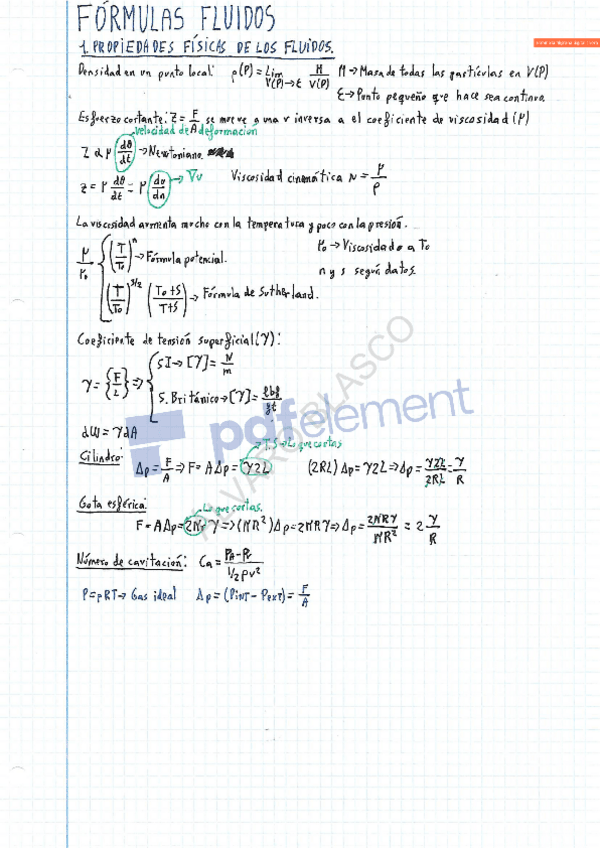 FÓRMULAS FLUIDOS
1. PROPIEDADES FÍSICAS DE LOS FLUIDOS.
Densidad en un punto local: ρ(P) = Lim V(P)→ε M/V(P) M → Masa de todas las partículas en V(P)
ε → Punto pequeño que hace sea continuo.
Esfuerzo cortante: Z = F/A se mueve a una v inversa a el coeficiente de viscosidad (μ)
velocidad de deformación
Z α μ dθ/dt → Newtoniano.
z = μ dθ/dt = μ dv/dn → ∇v Viscosidad cinemática N = μ/ρ
La viscosidad aumenta mucho con la temperatura y poco con la presión.
μ/μ₀ { (T/T₀)ⁿ → Fórmula potencial. μ₀ → Viscosidad a T₀
(T/T₀)^3/2 (T₀+S/T+S) → Fórmula de Sutherland. n y s según datos.
Coeficiente de tensión superficial (γ):
γ = {F/L} ⇒ { SI → [γ] = N/m
S. Británico → [γ] = lbf/ft
dW = γdA
T.S → Lo que cortas
Cilindro: Δp = F/A ⇒ F = AΔp = γ2L (2RL)Δp = γ2L ⇒ Δp = γ2L/2RL = γ/R
Lo que cortas.
Gota esférica: F = AΔp = 2πr γ ⇒ (πR²)Δp = 2πRγ ⇒ Δp = 2πRγ/πR² = 2 γ/R
Número de cavitación: Ca = PA - Pv / 1/2 ρv²
P = ρRT → Gas ideal Δp = (PINT - PEXT) = F/A
pdfelement
ÁLVARO BLASCO